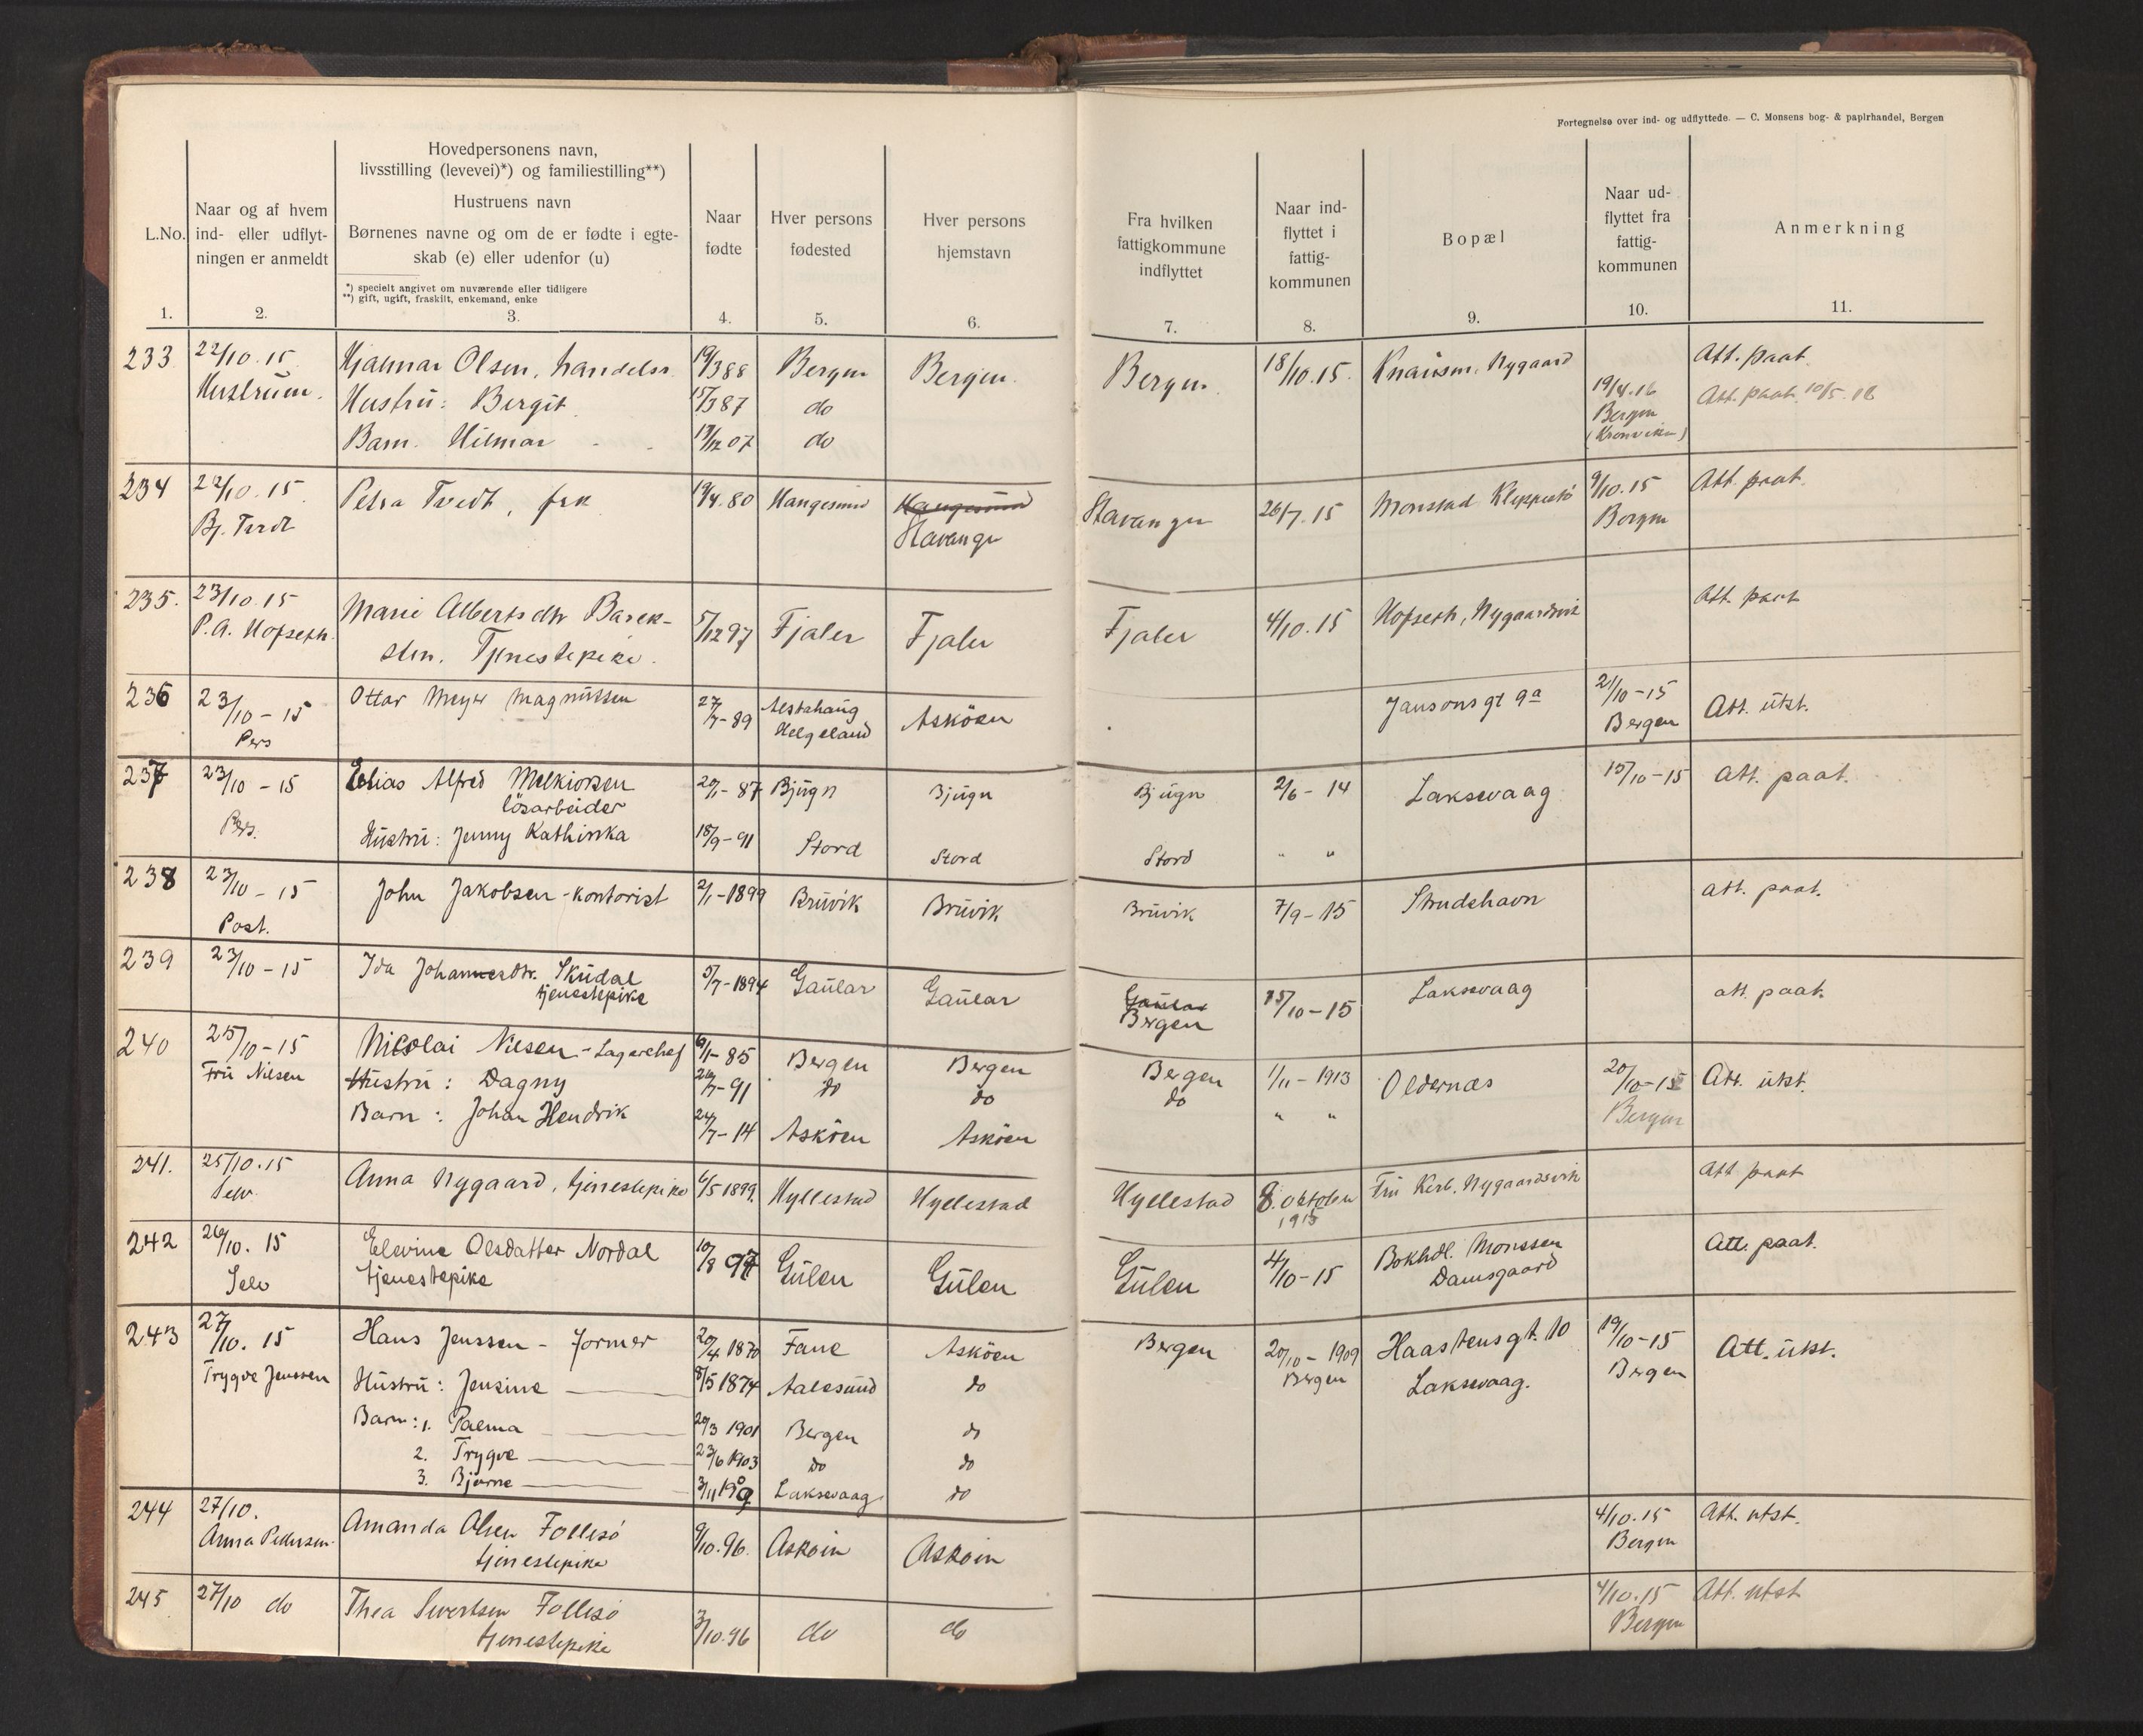 Fortegnelse over ind- og udflyttede. — C. Monsens bog- & papirhandel, Bergen
L.No.
1.
Naar og af hvem
ind- eller udflyt-
ningen er anmeldt
2.
Hovedpersonens navn,
livsstilling (levevei)*) og familiestilling**)
Hustruens navn
Børnenes navne og om de er fødte i egte-
skab (e) eller udenfor (u)
*) specielt angivet om nuværende eller tidligere
**) gift, ugift, fraskilt, enkemand, enke
3.
Naar
fødte
4.
Hver persons
fødested
5.
Hver persons
hjemstavn
6.
Fra hvilken
fattigkommune
indflyttet
7.
Naar ind-
flyttet i
fattig-
kommunen
8.
Bopæl
9.
Naar ud-
flyttet fra
fattig-
kommunen
10.
Anmerkning
11.
233 22/10.15 Hjalmar Olsen, handelsr. 19/3 88 Bergen Bergen Bergen 18/10.15. Nygaard Att. paat.
Hustruen. Hustrü: Bergit 15/3 87 do 19/4.16 Att. paat. 10/5.16
Bergen
Barn. Hilmar 17/12 07 do
234 22/10.15. Petra Tvedt, frk 19/4.80 Haugesund Haugesund Stavanger 26/7.15 Monstad Kleppestö 9/10.15 Att. paat.
Bj. Tvedt Stavanger Bergen
235. 23/10.15 Marie Albertsdtr Barek- 5/12 97 Fjaler Fjaler Fjaler 4/10.15 Hofseth, Nygaardsvik Att. paat
P.A. Hofseth. sten. Tjenestepike.
236 23/10-15 Ottar Meyer Magnussen 27/7-89 Alstahaug Asköen Jansonsgt 9a 21/10-15 Att. ütst.
Pers Helgeland Bergen
237 23/10-15 Elias Alfred Melkiorsen 20/1-87 Bjügn Bjügn Bjügn 2/6-14 Laksevaag 15/10-15 Att. paat.
lösarbeider
Pers. Hüstrü: Jenny Kathinka 18/9-91 Stord Stord Stord " "
238 23/10-15 John Jakobsen - kontorist 2/1-1899 Brüvik Brüvik Brüvik 7/9-15 Strudshavn att. paat.
Post.
239 23/10-15 Ida Johannesdtr. Sküdal 5/7-1894 Gaülar Gaülar Gaülar 15/10-15 Laksevaag att. paat.
tjenestepike Bergen
240 25/10-15 Nicolai Nilsen - Lagerchef 6/1-85 Bergen Bergen Bergen 1/11-1913 Oldernæs 20/10-15 Att. ütst.
Frü Nilsen Hüstrü: Dagny 26/7-91 do do do Bergen
Barn: Johan Hendrik 24/7-14 Asköen Asköen " "
241. 25/10.15 Anna Nygaard, tjenestepike 6/5 1899. Hyllestad Hyllestad Hyllestad 8. oktober Frü Kerb. Nygaardsvik Att paat
Selv. 1915
242 26/10.15 Elevine Olsdatter Nordal 10/8 97 Gülen Gülen Gülen 4/10-15 Bokhdl. Monssen Att. paat.
Selv tjenestepike Damsgaard
243 27/10.15 Hans Jenssen - former 20/4 1870 Fane Asköen Bergen 20/10-1909 Haastensgt. 10 19/10-15 Att. ütst.
Trygve Jenssen Hüstrü: Jensine 8/5 1874 Aalesünd do Bergen Laksevaag. Bergen
Barn: 1. Palma 20/3 1901 Bergen do
2. Trygve 23/6 1903 do do
3. Bjarne 3/11 1909 Laksevaag do
244 27/10. Amanda Olsen Follesö 9/10.96. Asköen Asköen 4/10.15 Att. utst.
Anna Pedersen. tjenestepike Bergen
245 27/10 do Thea Sivertsen Follesö 3/10.96 do do 4/10.15 Att. utst
tjenestepike Bergen